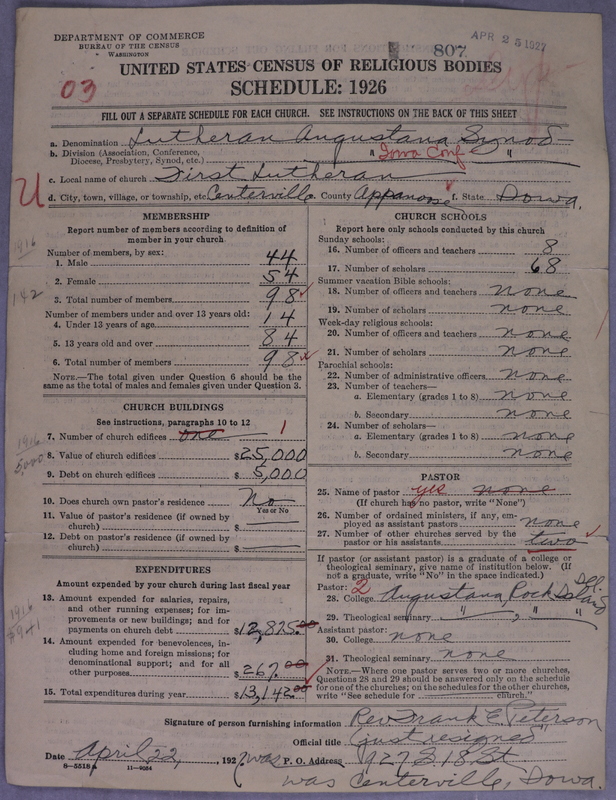 DEPARTMENT OF COMMERCE
BUREAU OF THE CENSUS
WASHINGTON
807
APR 25 1927
UNITED STATES CENSUS OF RELIGIOUS BODIES
SCHEDULE: 1926
03
FILL OUT A SEPARATE SCHEDULE FOR EACH CHURCH. SEE INSTRUCTIONS ON THE BACK OF THIS SHEET
a. Denomination Lutheran Augustana Synod
b. Division (Association, Conference, Diocese, Presbytery, Synod, etc.) " Iowa Conf "
c. Local name of church First Lutheran
U
d. City, town, village, or township, etc. Centerville e. County Appanoose f. State Iowa.
MEMBERSHIP
Report number of members according to definition of
member in your church
1916
Number of members, by sex:
1. Male 44
2. Female 54
142
3. Total number of members 98
Number of members under and over 13 years old:
4. Under 13 years of age 14
5. 13 years old and over 84
6. Total number of members 98
NOTE.—The total given under Question 6 should be the
same as the total of males and females given under Question 3.
CHURCH BUILDINGS
See instructions, paragraphs 10 to 12
7. Number of church edifices one 1
1916
5,000
8. Value of church edifices $25,000
9. Debt on church edifices $5,000
10. Does church own pastor's residence No
Yes or No
11. Value of pastor's residence (if owned by
church) $
12. Debt on pastor's residence (if owned by
church) $
EXPENDITURES
Amount expended by your church during last fiscal year
13. Amount expended for salaries, repairs,
and other running expenses; for im-
provements or new buildings; and for
payments on church debt $12,875.00
1916
$941
14. Amount expended for benevolences, in-
cluding home and foreign missions; for
denominational support; and for all
other purposes $267.00
15. Total expenditures during year $13,142.00
CHURCH SCHOOLS
Report here only schools conducted by this church
Sunday schools:
16. Number of officers and teachers 8
17. Number of scholars 68
Summer vacation Bible schools:
18. Number of officers and teachers none
19. Number of scholars none
Week-day religious schools:
20. Number of officers and teachers none
21. Number of scholars none
Parochial schools:
22. Number of administrative officers none
23. Number of teachers—
a. Elementary (grades 1 to 8) none
b. Secondary none
24. Number of scholars—
a. Elementary (grades 1 to 8) none
b. Secondary none
PASTOR
25. Name of pastor yes none
(If church has no pastor, write "None")
26. Number of ordained ministers, if any, em-
ployed as assistant pastors none
27. Number of other churches served by the
pastor or his assistants two
If pastor (or assistant pastor) is a graduate of a college or
theological seminary, give name of institution below. (If
not a graduate, write "No" in the space indicated.)
Pastor: 2
28. College Augustana Rock Island Ill.
29. Theological seminary " " "
Assistant pastor:
30. College none
31. Theological seminary none
NOTE.—Where one pastor serves two or more churches,
Questions 28 and 29 should be answered only on the schedule
for one of the churches; on the schedules for the other churches,
write "See schedule for church."
Signature of person furnishing information Rev Frank E Peterson
Official title (just resigned)
Date April 22, 1927 was P. O. Address 927 S 18 St
8—5518 a 11—9554
was Centerville, Iowa.